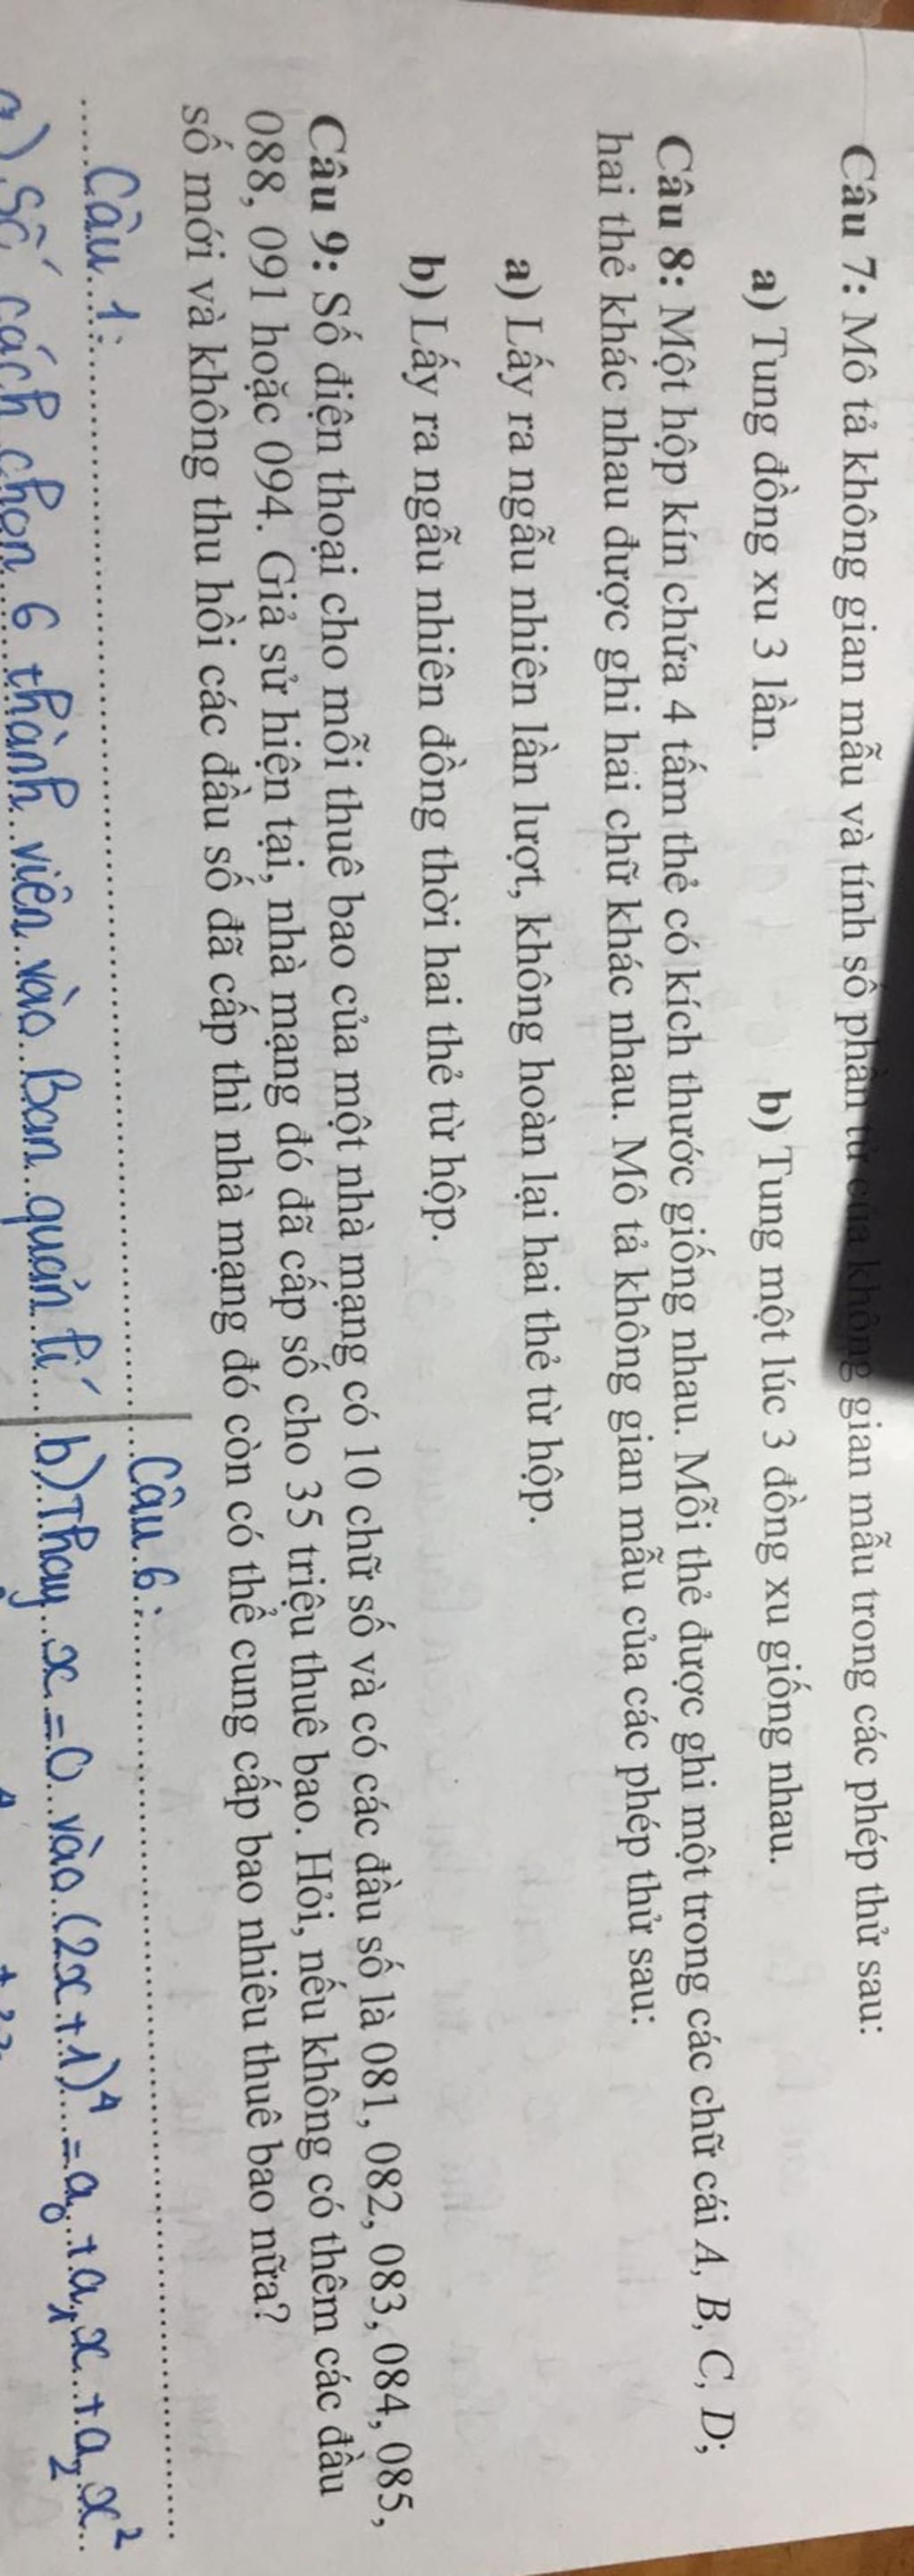 Câu 7: Mô tả không gian mẫu và tính số phần tử của không gian mẫu trong các phép thử sau:
a) Tung đồng xu 3 lần. b) Tung một lúc 3 đồng xu giống nhau.
Câu 8: Một hộp kín chứa 4 tấm thẻ có kích thước giống nhau. Mỗi thẻ được ghi một trong các chữ cái A, B, C, D;
hai thẻ khác nhau được ghi hai chữ khác nhau. Mô tả không gian mẫu của các phép thử sau:
a) Lấy ra ngẫu nhiên lần lượt, không hoàn lại hai thẻ từ hộp.
b) Lấy ra ngẫu nhiên đồng thời hai thẻ từ hộp.
Câu 9: Số điện thoại cho mỗi thuê bao của một nhà mạng có 10 chữ số và có các đầu số là 081, 082, 083, 084, 085,
088, 091 hoặc 094. Giả sử hiện tại, nhà mạng đó đã cấp số cho 35 triệu thuê bao. Hỏi, nếu không có thêm các đầu
số mới và không thu hồi các đầu số đã cấp thì nhà mạng đó còn có thể cung cấp bao nhiêu thuê bao nữa?
Câu 1: Câu 6:
a) Số cách chọn 6 thành viên vào Ban quản lí b) Thay x = 0 vào (2x+1)⁴ = a₀ + a₁x + a₂x²